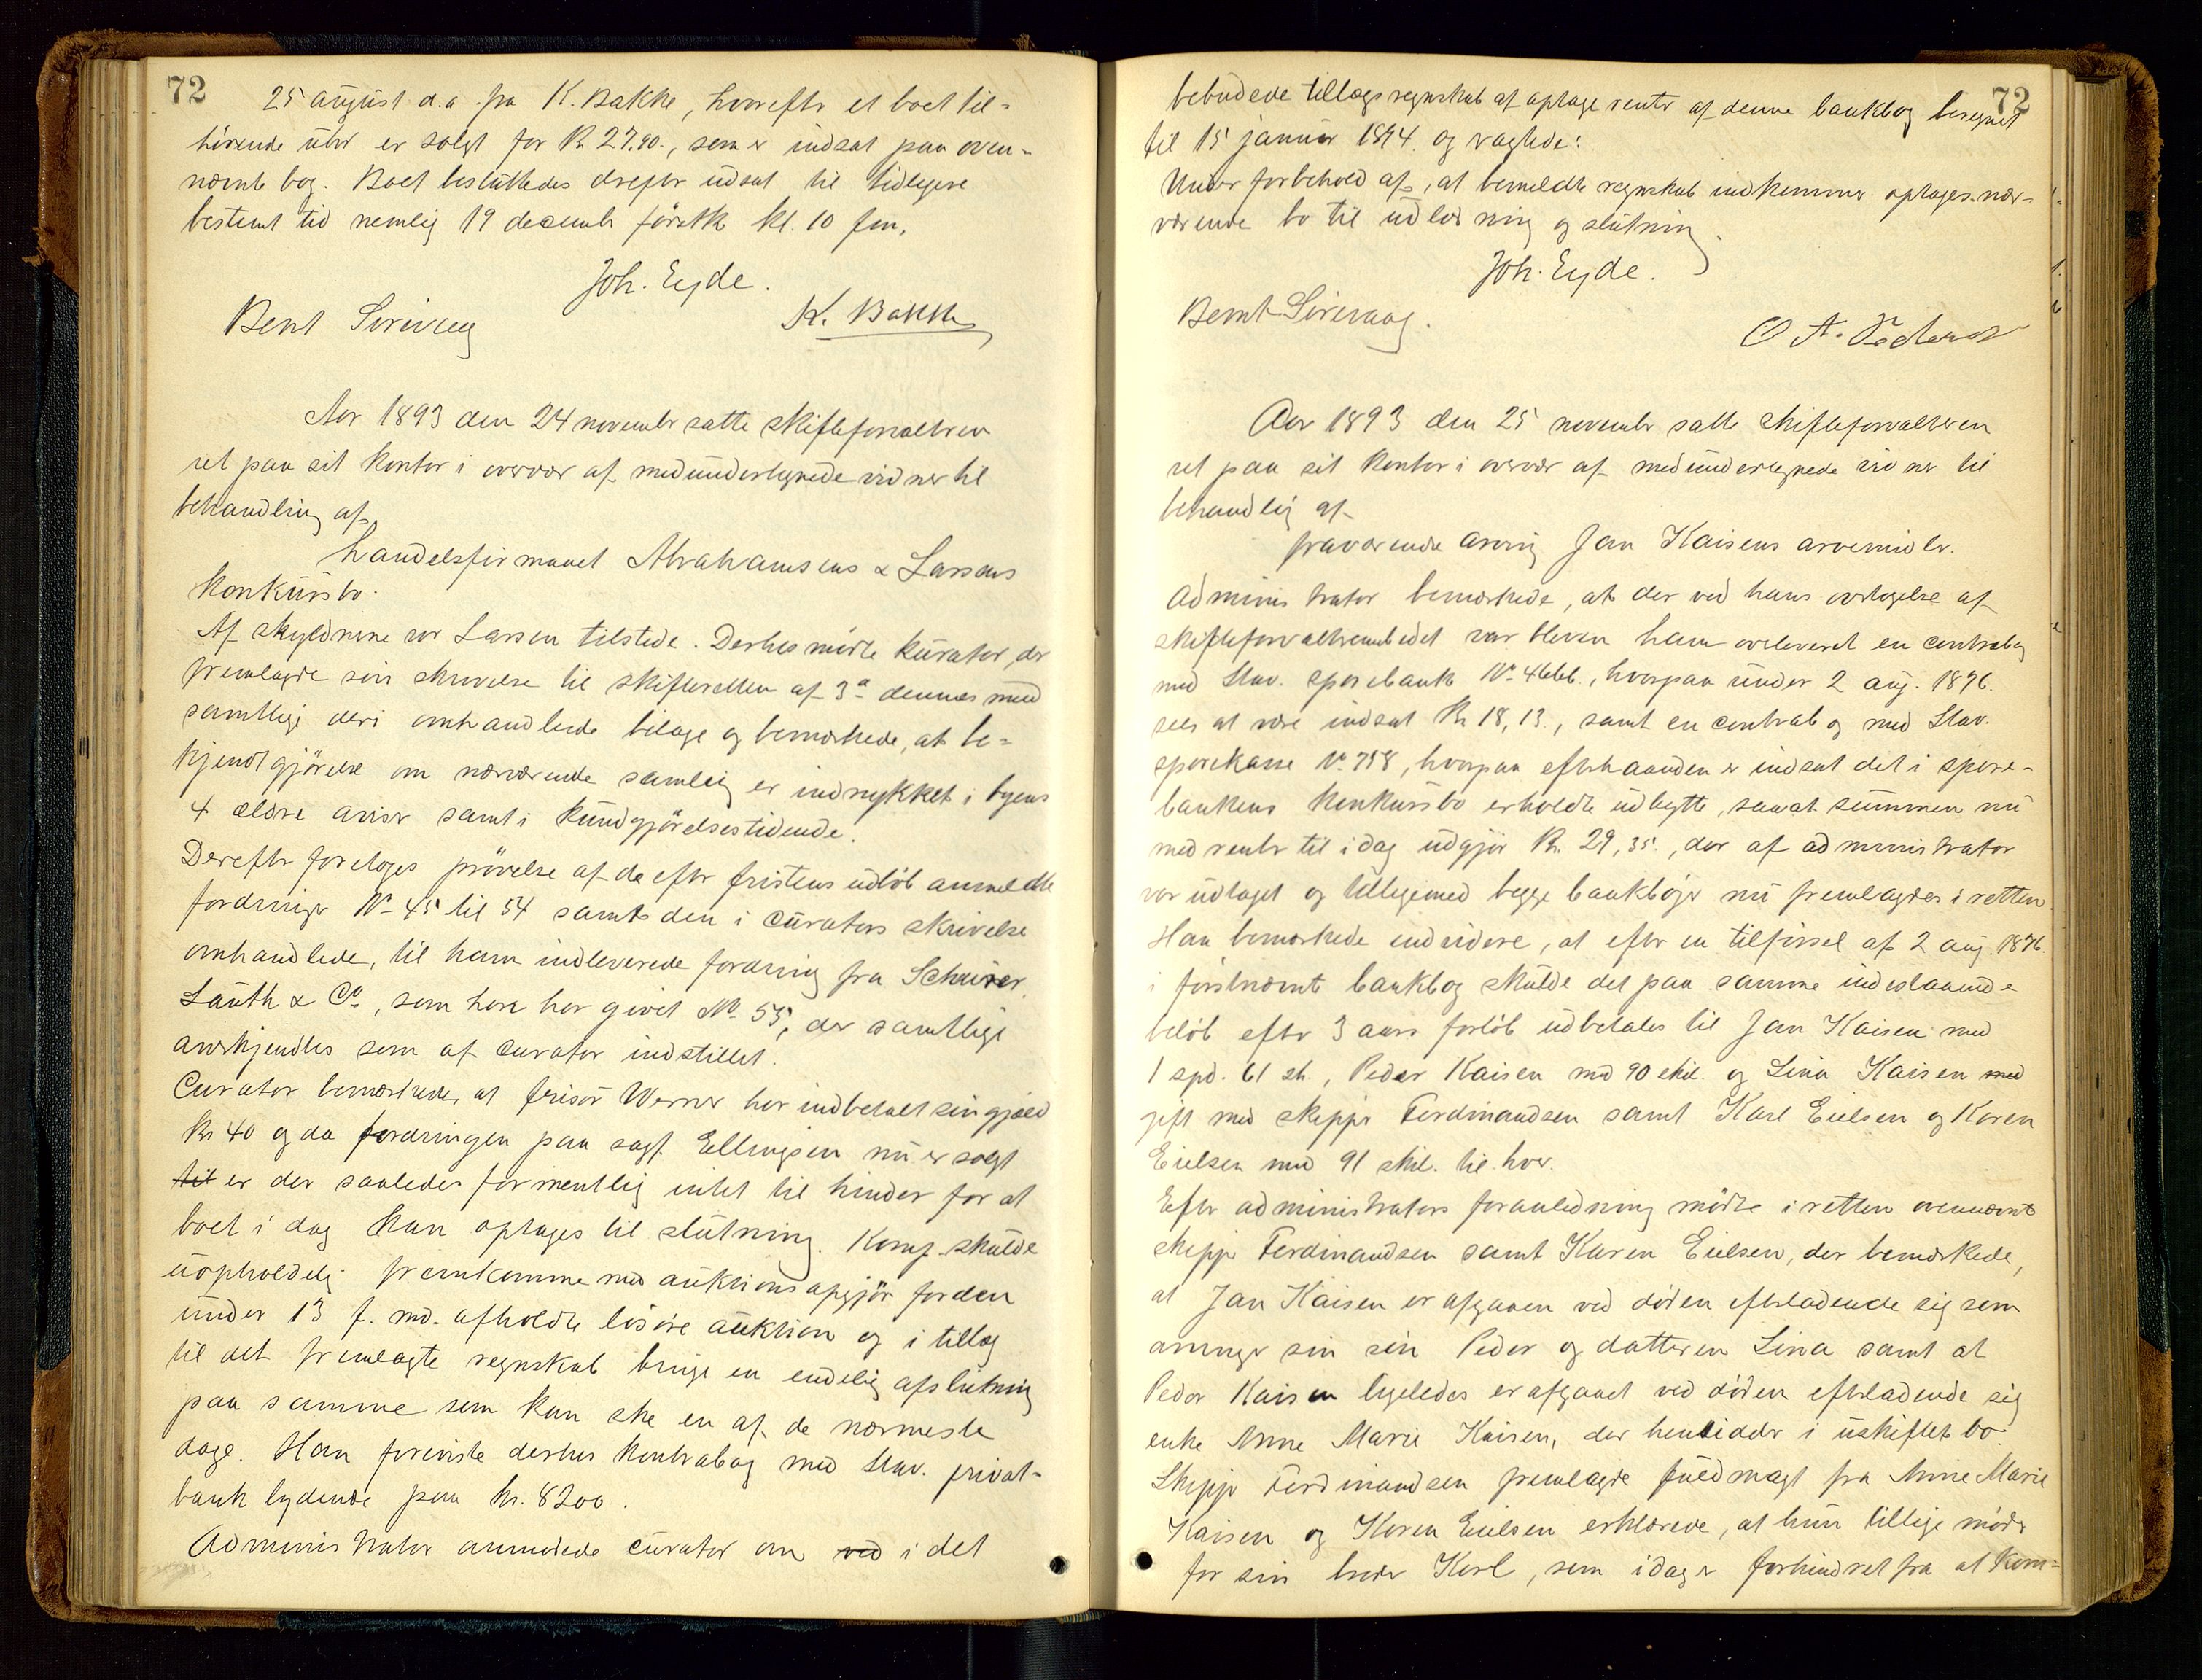 72
25 august d.a. fra K. Bakke, hvorefter et boet til-
hørende uhr er solgt for Kr 27.90., som er indsat paa oven-
nævnte bog. Boet besluttedes derefter udsat til tidligere
bestemt tid nemlig 19 decembr førstk kl. 10 fm.
Joh. Eyde.
Bent Sirevaag K. Bakke
Aar 1893 den 24 novembr satte skifteforvalteren
ret paa sit kontor i overvær af medundertegnede vidner til
behandling af
handelsfirmaet Abrahamsens & Larsens
konkursbo.
Af skyldnerne var Larsen tilstede. Derhos mødte kurator, der
fremlagde sin skrivelse til skifteretten af 3die dennes med
samtlige deri omhandlede bilage og bemærkede, at be-
kjendtgjørelse om nærværende samling er indrykket i byens
4 ældre aviser samt i kundgjørelsestidende.
Derefter foretoges prøvelse af de efter fristens udløb anmeldte
fordringer No 45 til 54 samt den i curators skrivelse
omhandlede, til ham indleverede fordring fra Scheurer
Lauth & Co., som hen har givet No. 55, der samtlige
anerkjendtes som af curator indstillet.
Curator bemærkede, at frisør Werner har indbetalt sin gjæld
Kr 40 og da fordringen paa sagf. Ellingsen nu er solgt
til er der saaledes formentlig intet til hinder for at
boet i dag kan optages til slutning. Komp. skulde
uopholdelig fremkomme med auktionsopgjør for den
under 13 f. md. afholdte løsøre auktion og i tillæg
til det fremlagte regnskab bringe en endelig afslutning
paa samme som kan ske en af de nærmeste
dage. Han foreviste derhos kontrabog med Stav. privat-
bank lydende paa kr. 8200.
Administrator anmodede curator om ved i det
72
bebudede tillægsregnskab at optage renter af denne bankbog beregnet
til 15 januar 1894 og vagtede:
Under forbehold af, at bemeldte regnskab indkommer optages nær-
værende bo til udlodning og slutning.
Joh. Eyde.
Bernt Sirevaag.
O A.
Aar 1893 den 25 novembr satte skifteforvalteren
ret paa sit kontor i overvær af medundertegnede vidner til
behandlig af
fraværende arving Jan Kaisens arvemidler.
Administrator bemærkede, at der ved hans overtagelse af
skifteforvalterembedet var bleven ham overleveret en contrabog
med Stav. sparebank No. 4666., hvorpaa under 2 aug. 1876.
sees at være indsat Kr 18,13., samt en contrabog med Stav.
sparekasse No. 798, hvorpaa efterhaanden er indsat det i spare-
bankens konkursbo erholdte udbytte, saaat summen nu
med renter til idag udgjør Kr. 29,35., der af administrator
var udtaget og tilligemed begge bankbøger nu fremlagdes i retten.
Han bemærkede endvidere, at efter en tilførsel af 2 aug. 1876.
i førstnævnte bankbog skulde det paa samme indestaaende
beløb efter 3 aars forløb udbetales til Jan Kaisen med
1 spd. 61 sk., Peder Kaisen md 90 skil. og Lina Kaisen med
gift med skipper Ferdinandsen samt Karl Eielsen og Karen
Eielsen med 91 skil. til hver.
Efter administrators foranledning mødte i retten ovennævnte
skipper Ferdinandsen samt Karen Eielsen, der bemærkede,
at Jan Kaisen er afgaaen ved døden efterladende sig som
arvinger sin søn Peder og datteren Lina samt at
Peder Kaisen ligeledes er afgaaet ved døden efterladende sig
enke Anne Marie Kaisen, der hensidder i uskiftet bo.
Skipper Ferdinandsen fremlagde fuldmagt fra Anne Marie
Kaisen og Karen Eielsen erklærede, at hun tillige møder
for sin broder Karl, som idag er forhindret fra at kom-